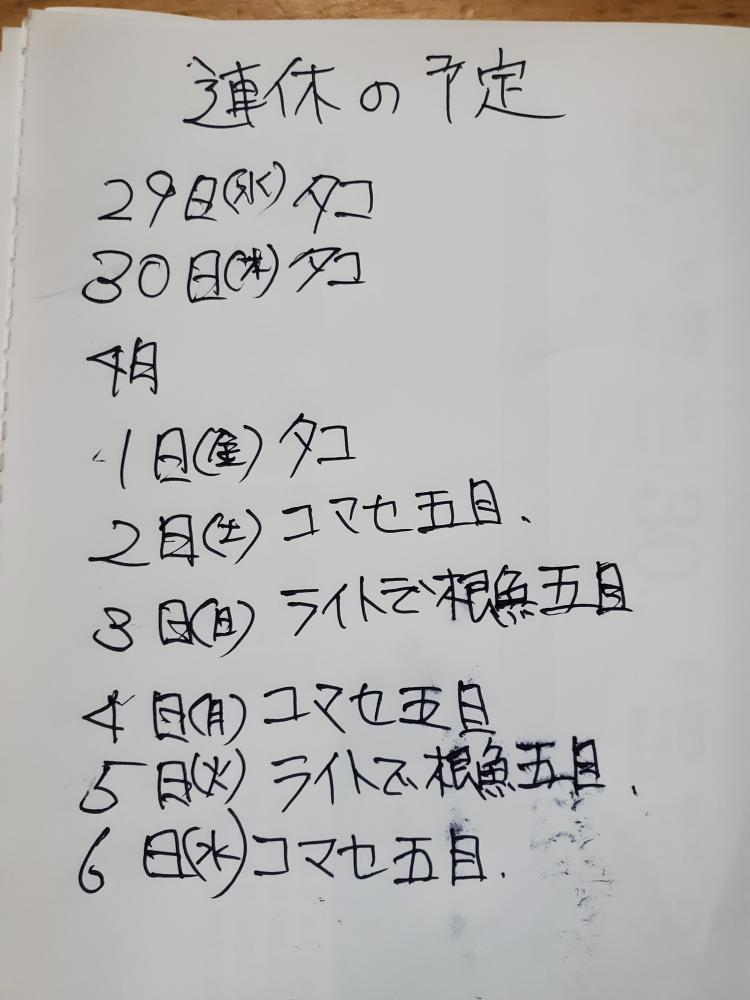 連休の予定
29日(水)タコ
30日(木)タコ
4月
1日(金)タコ
2日(土)コマセ五目.
3日(日)ライトで根魚五目
4日(月)コマセ五目
5日(火)ライトで根魚五目.
6日(水)コマセ五目.